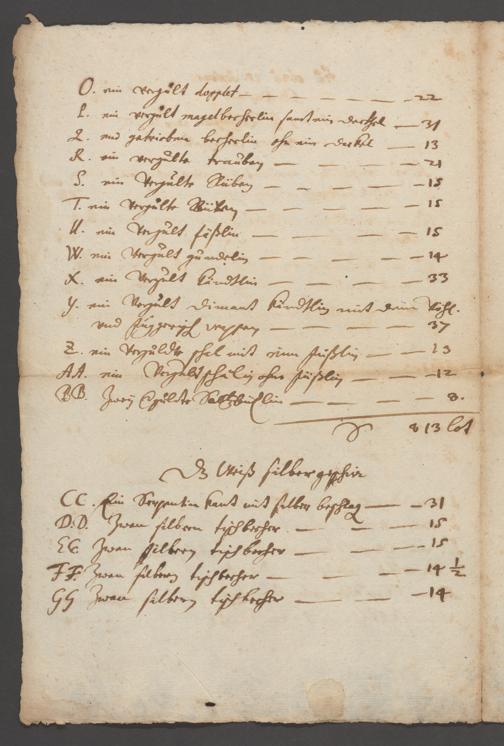 O. ein vergült dopplet — 22
P. ein vergült magelbecherlin sambt ein deckhel — 31
Q. ein getriben becherlin ohn ein deckel — 13
R. ein vergülte trauben — 21
S. ein vergülte — 15
T. ein vergülte — 15
U. ein vergült fäßlin — 15
W. ein vergült — 14
X. ein vergült kändtlin — 33
Y. ein vergült dimant kändtlin mit dem
und wappen — 37
Z. ein vergüldte schal mit einem füßlin — 13
AA. ein vergültschälin ohne füßlin — 12
BB. Zwey vgülte Saltzbüchlin — 8.
813 lot
Weiß silbergeschir
CC. Ein Serpentin kant mit silber beschlag — 31
D.D. Zwen silbern tischbecher — 15
EE. Zwen silbern tischbecher — 15
FF. Zwen silbern tischbecher — 14 ½
GG Zwen silbern tischbecher — 14